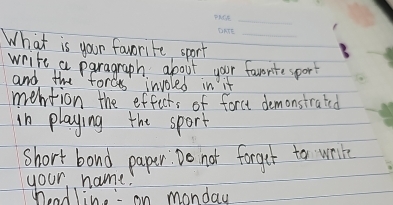 PAGE
DATE
What is your favorite sport
write a paragraph about your favorite sport
and the forces involed in it
mention the effects of force demonstrated
in playing the sport
short bond paper. Do not forget to write
your name.
Deadline - on monday